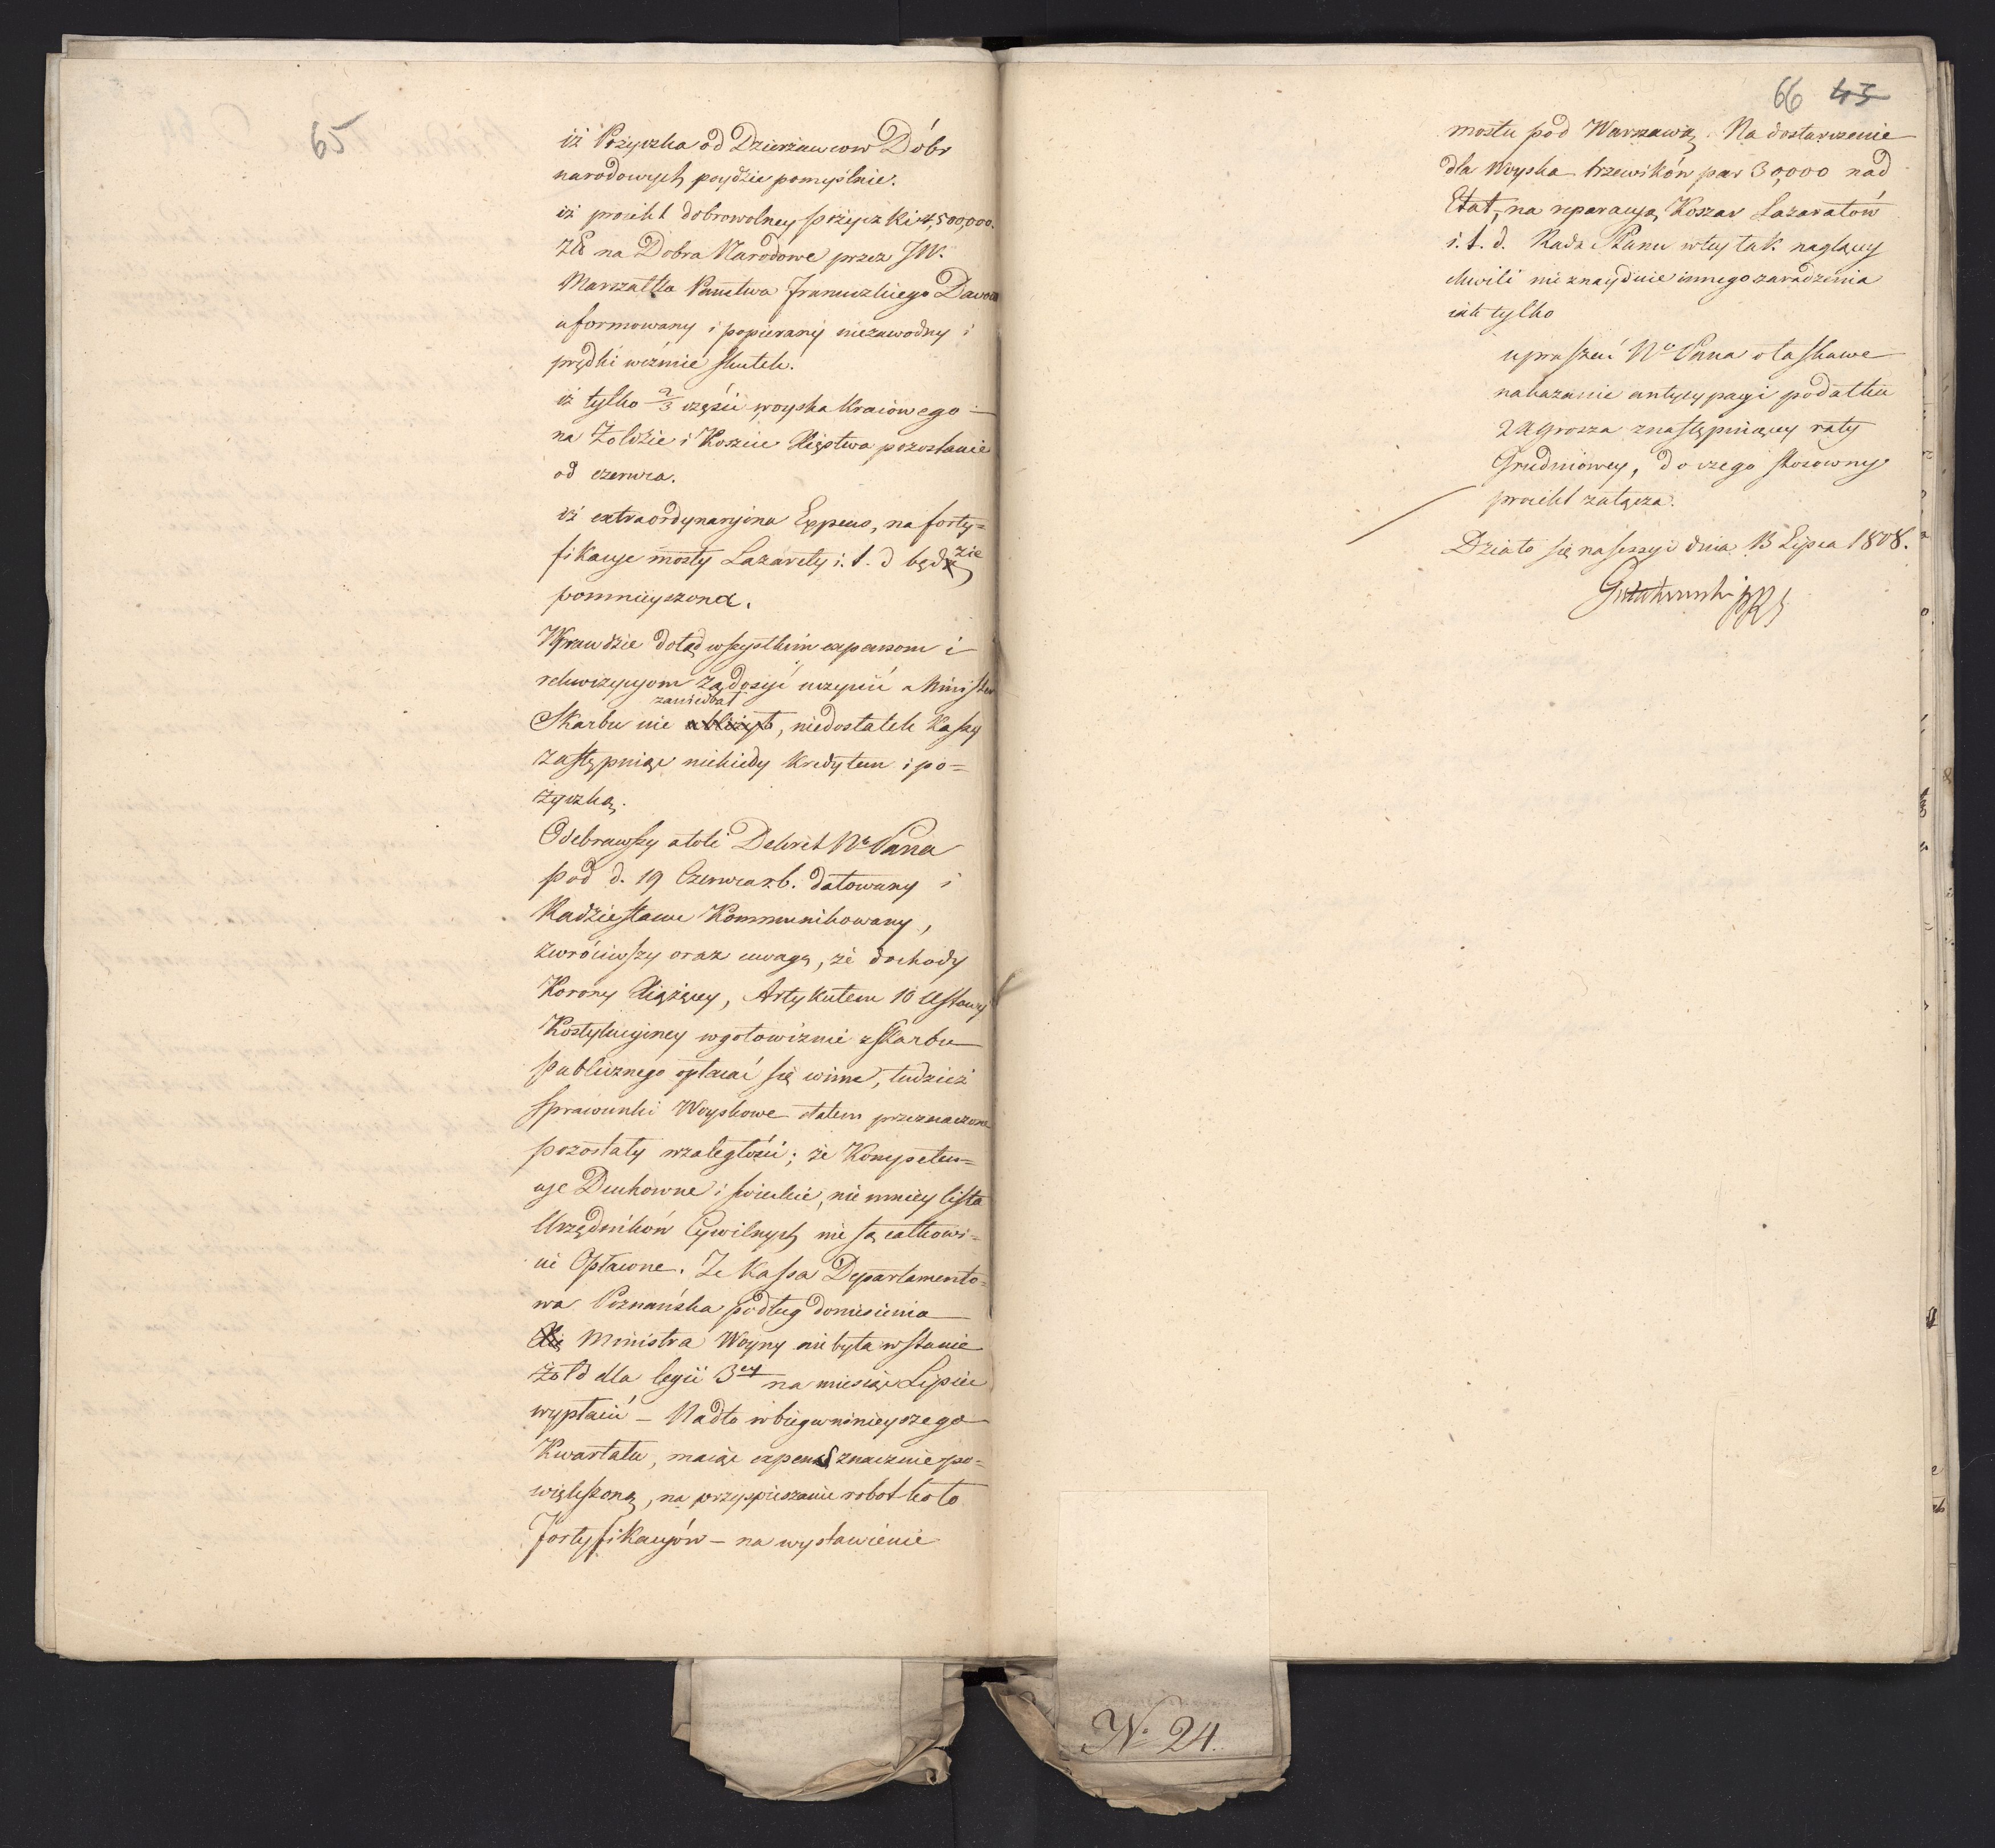 65
iż Pożyczka od Dzierzawcow Dóbr
narodowych poydzie pomyślnie.
iż proiekt dobrowolney pożyczki 4,500,000.
Zł na Dobra Narodowe przez JW.
Marszałka Państwa Francuzkiego Davou
uformowany i popierany niezawodny i
prędki weźmie skutek.
iż tylko 2/3 części woyska kraiowego
na Żołdzie i Koszcie Xięstwa pozostanie
od czerwca.
iż extraordynaryina Expens, na forty=
fikacye mosty Lazarety i. t. d będzie
pomnieyszona.
Wprawdzie dotąd wszystkim expensom i
rekwizycyom zadosyć uczynić Minister
Skarbu nie zaniedbał, niedostatek Kassy
zastępuiąc niekiedy kredytem i po=
życzką.
Odebrawszy atoli Dekret Ngo Pana
pod d. 19 Czerwca r.b. datowany i
Radzie stanu Kommunikowany,
zwróciwszy oraz uwagę, że dochody
Korony Xiążęcey, Artykułem 10 Ustawy
Kostytucyiney w gotowiznie z skarbu
publicznego opłacać się winne, tudzież
sprawunki Woyskowe etatem przeznaczone
pozostały w zaległości; że Kompeten=
cye Duchowne i świeckie, nie mniey lista
Urzędników Cywilnych nie są całkowi=
cie Opłacone. Że Kassa Departamento=
wa Poznańska podług doniesienia
Ministra Woyny nie była w stanie
żołd dla legii 3ey na miesiąc Lipiec
wypłacić – Nadto w biegu ninieyszego
Kwartału, maiąc expens znacznie po=
większoną, na przyspieszenie robot koło
Fortyfikacyów – na wystawienie
66 43
mostu pod Warszawą. Na dostarczenie
dla Woyska trzewików par 30,000 nad
Etat, na reparacyą Koszar Lazaratów
i. t. d. Rada Stanu w tey tak naglącey
chwili nie znayduie innego zaradzenia
iak tylko
upraszać Ngo Pana o łaskawe
nakazanie antycypacyi podatku
24 grosza z następuiącey raty
Grudniowey, do czego stosowny
proiekt załącza.
Działo się na sessyi dnia 13 Lipca 1808.
Gutakowski PRS
No 24.